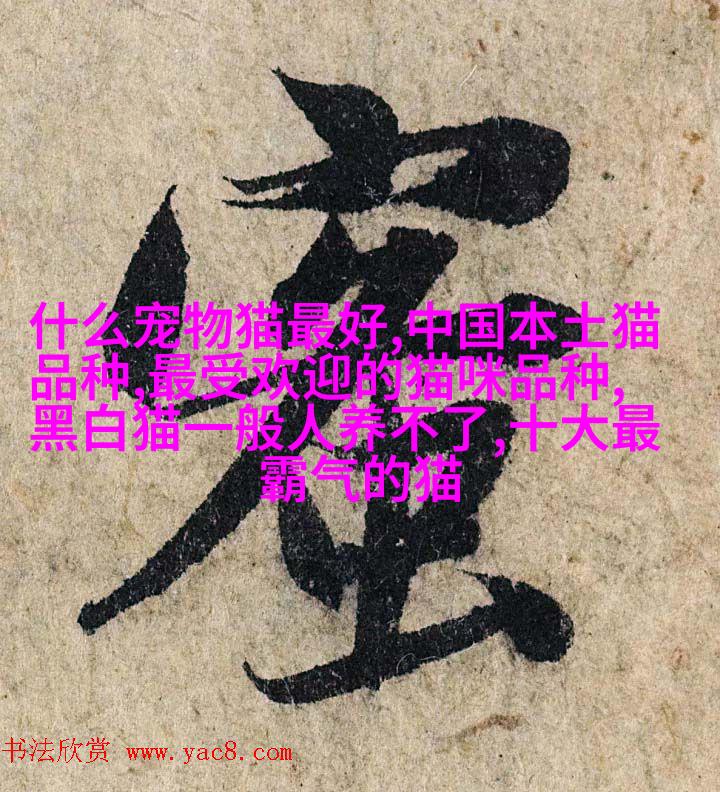 什么宠物猫最好,中国本土猫
品种,最受欢迎的猫咪品种,
黑白猫一般人养不了,十大最
霸气的猫
书法欣赏 www.yac8.com